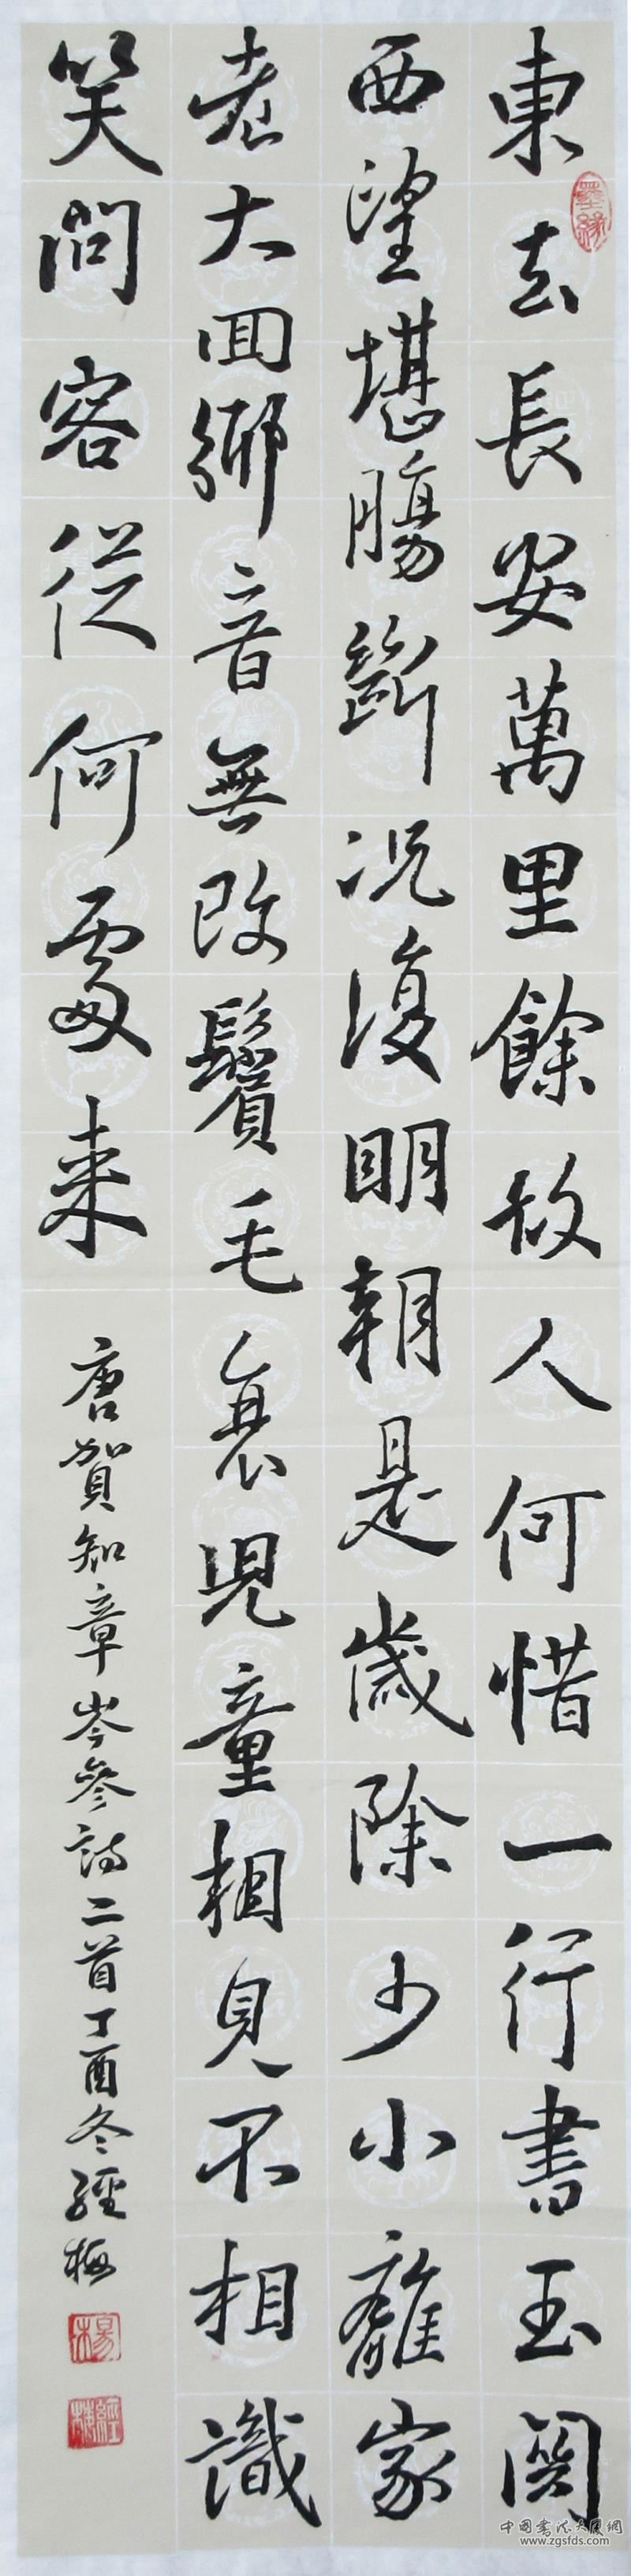 東去長安萬里餘故人何惜一行書玉関
西望堪腸斷况復明朝是歲除少小離家
老大回鄉音無改鬢毛衰兒童相見不相識
笑問客從何處来
唐賀知章岑参詩二首丁酉冬經梅
墨緣
楊
經梅
中国书法大展網
www.zgsfds.com